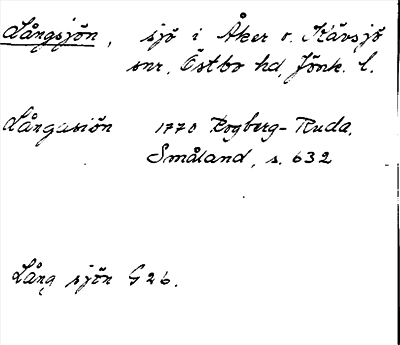 Långsjön, sjö i Åker o. Kävsjö
snr, Östbo hd, Jönk. l.
Långasiön 1770 Rogberg-Ruda,
Småland, s. 632
Lång sjön G26.